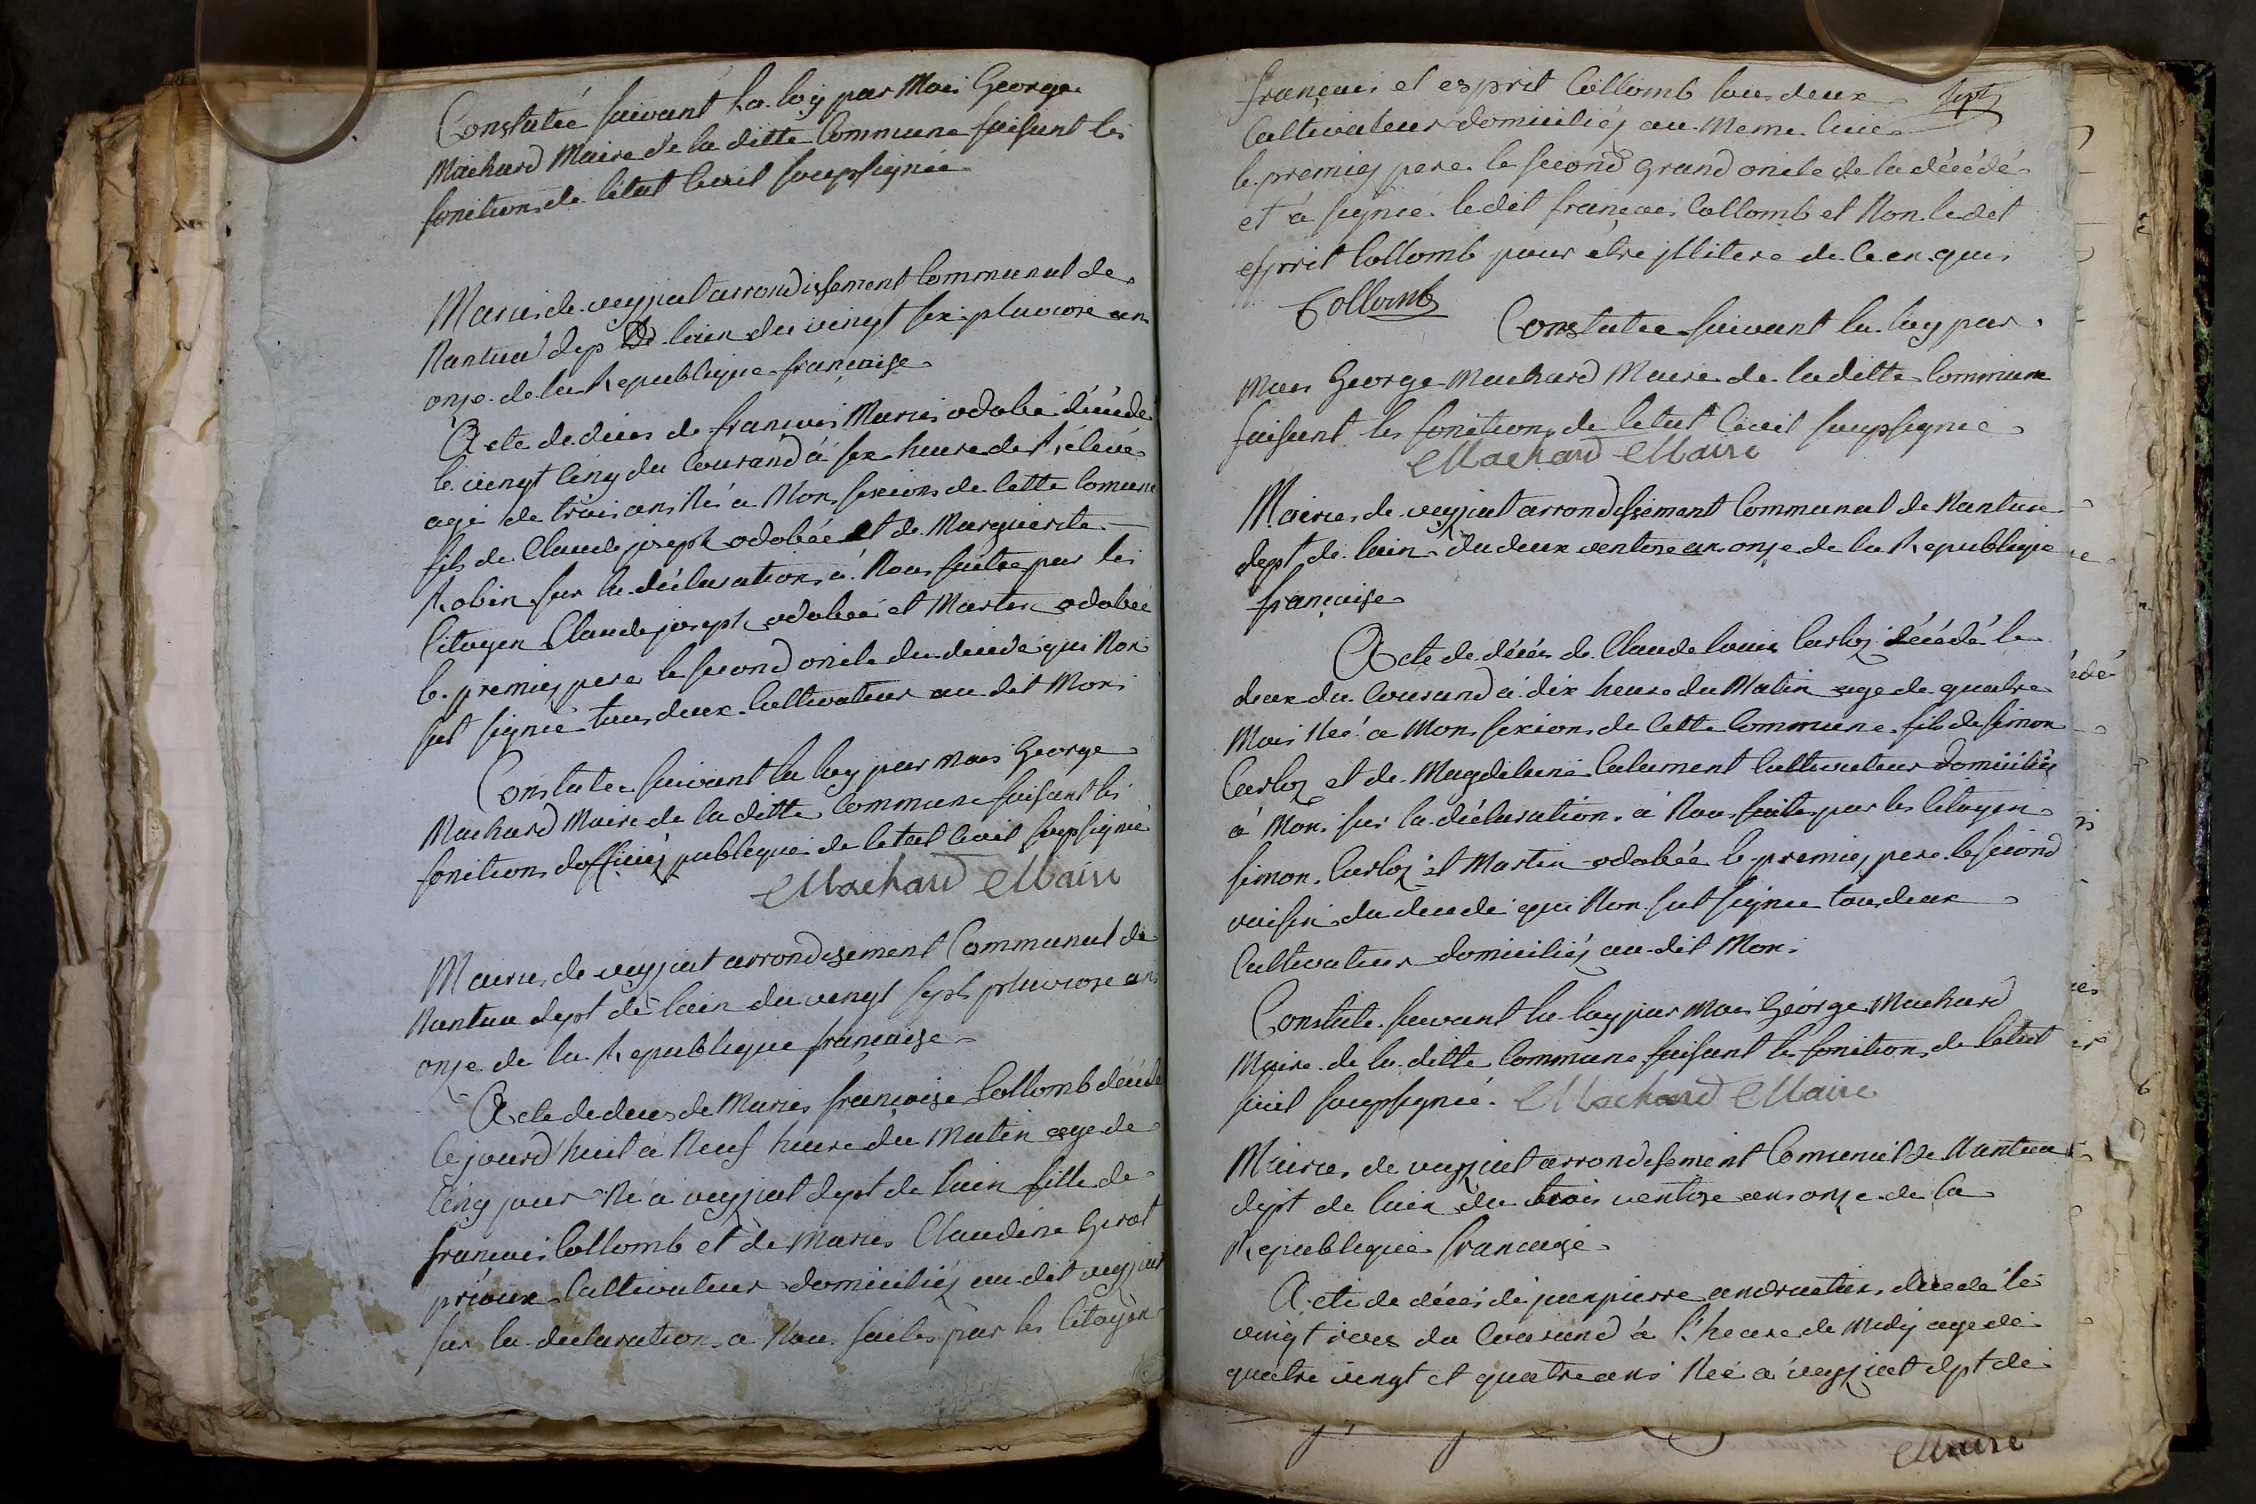 Constateé suivant La loy par Moi George
Machard Maire de la ditte Commune faisant les
fonctions de létat Civil soupsignée
Mairie de veyziat arrondissement Communal de
Nantua dep de lain du vingt six pluviose an
onze de la Republique française
Acte de déces de françois Marie odobé décédé
le vingt cinq du Courand à six heure du
agé de trois ans Né a Mons sexions de Cette Comune
fils de Claude joseph odobée et de Marguierite
Robin sur la déclaration à Nous faite par les
Citoyen Claude joseph odobée et Martin odobée
le premiej pere le second oncle du décédé qui Non
sut signée tous deux Cultivateur au dit Mons
Constatée suivant la loy par Moi George
Machard Maire de la ditte Commune faisant les
fonctions dofficiej publique de letat Civil soupsigné
Machard Maire
Mairie de veyziat arrondisement Communal de
Nantua dept de lain du vingt sept pluviose an
onze de la Republique française
Acte de deces de Marie françoise Collomb décédé
Cejourd'huit à Neuf heure du Matin age de
Cinq jour Né a veyziat dept de lain fille de
francois Collomb et de Marie Claudine Girot
Cultivateur domiciliéj au dit veyziat
sur la declaration a Nous faites par les Citoyen
françois et esprit Collomb tous deux
sept
Cultivateur domiciliéj au Meme lieu
le premiej pere le second grand oncle de la décédé
et à signée ledit françois Collomb et Non ledit
esprit Collomb pour etre jllitere de Ce en quis
Collomb
Constatee suivant la loy par
Moi George Machard Maire de laditte Commune
faisant les fonctions de letat Civil soupsignée
Machard Maire
Mairie de veyziat arrondissement Communal de Nantua
dept de lain du deux ventose an onze de la Republique
française
Acte de décés de Claude louis Carloz décédé le
deux du Courand à dix heure du Matin age de quatre
Mois Née a Mons sexions de Cette Commune fils de simon
Carloz et de Magdelaine Calument Cultivateur domiciliés
à Mons sur la déclaration à Nous faites par les Citoyen
simon Carloz et Martin odobée le premiej pere le second
voisin du decede qui Non sut signee tous deux
Cultivateur domiciliéj au dit Mons
Constate suivant la loy par Moi George Machard
Maire de la ditte Commune faisant les fonctions de letat
sivil soupsignée. Machard Maire
Mairie de veyziat arrondisement Comunal de Nantua
dept de lain du trois ventose an onze de la
Republique francaise
Acte de déces de jean pierre decedé le
vingt du Courand à l'heure de Midy age de
quatre vingt et quatre ans Née a veyziat dpt de
Maire